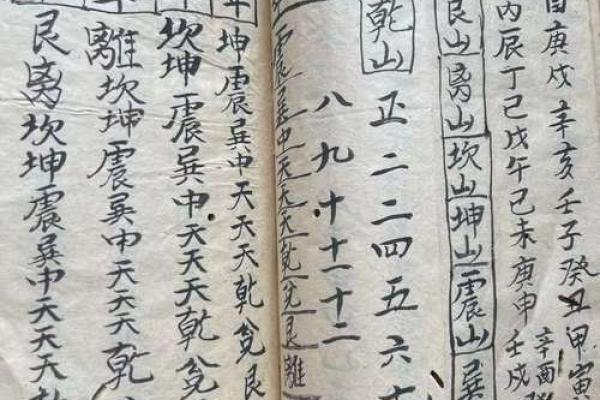 庚戌辛亥壬子癸丑甲寅
丙辰丁巳戊午己未庚申辛酉壬戌
艮山离山坎山坤山震山巽
乾山正二二四五六
八九十十一十二
震巽中天天天乾兌艮離
坤震巽中天天天乾兌艮
坎坤震巽中天天天乾兌
離坎坤震巽中天天天乾
艮离坎坤震巽中天天天乾